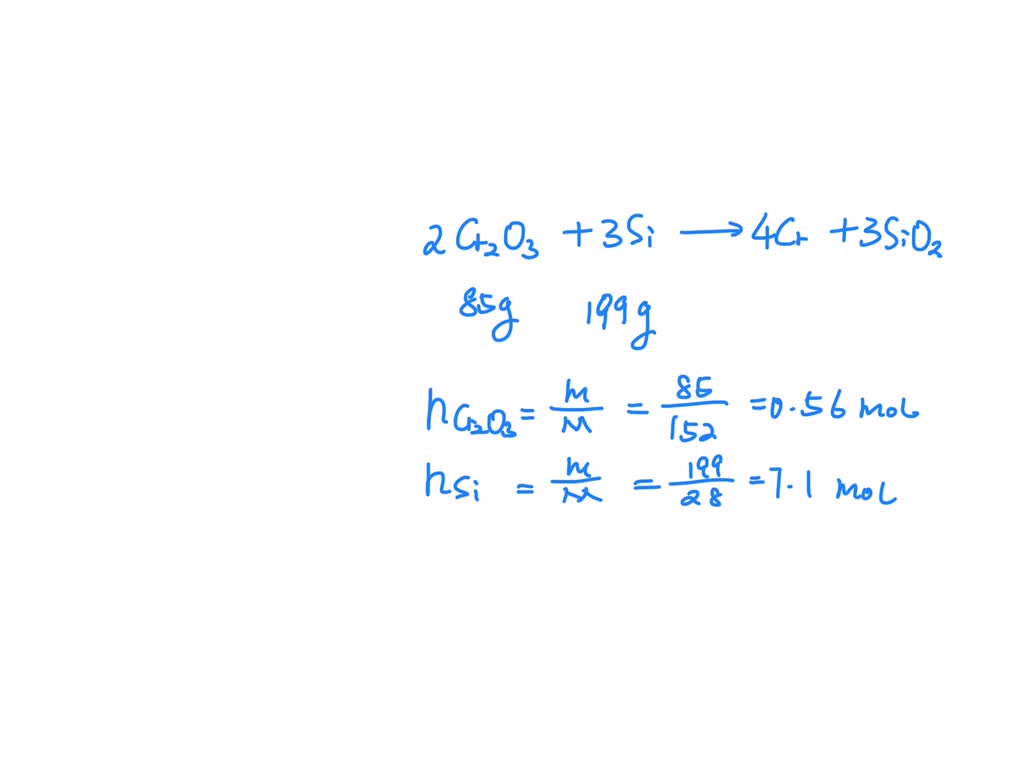 2Cr₂O₃ + 3Si → 4Cr + 3SiO₂
85g 199g
n Cr₂O₃ = m/M = 85/152 = 0.56 mol
n Si = m/M = 199/28 = 7.1 mol